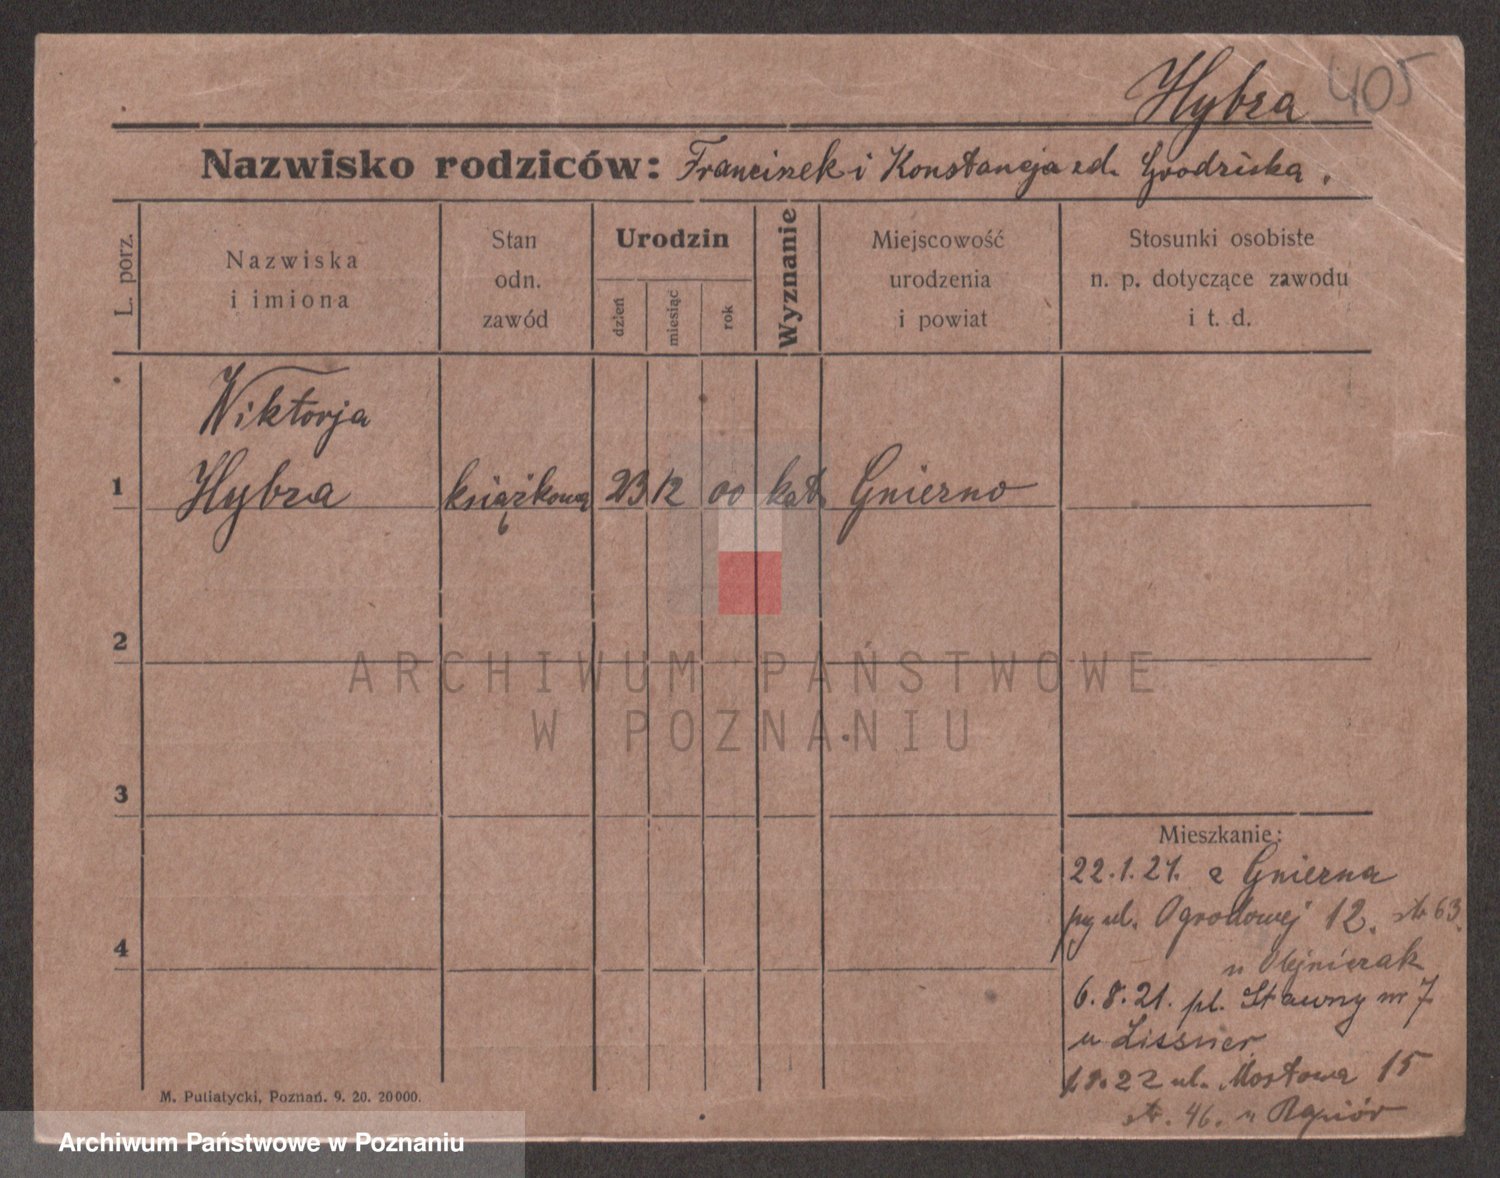 Hybza 405
Nazwisko rodziców: Franciszek i Konstancja zd. Grodziska.
L. porz.
Nazwiska
i imiona
Stan
odn.
zawód
Urodzin
dzień
miesiąc
rok
Wyznanie
Miejscowość
urodzenia
i powiat
Stosunki osobiste
n. p. dotyczące zawodu
i t. d.
Wiktorja
1 Hybza książkowa 23 12 00 kat. Gniezno
2
3
4
Mieszkanie:
22.1.21. z Gniezna
ul. Ogrodowej 12. 63.
u Olejniczak
6.8.21. pl. Stawny nr 7
u Lissner
22 ul. Mostowa 15
46. u
M. Putiatycki, Poznań. 9. 20. 20000.
ARCHIWUM PAŃSTWOWE
W POZNANIU
Archiwum Państwowe w Poznaniu